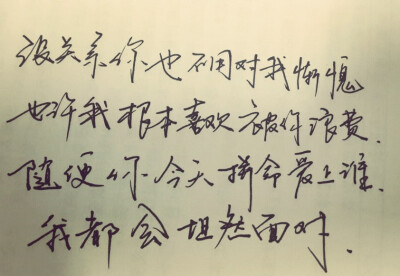 没关系你也不用对我惭愧
也许我根本喜欢被你浪费.
随便你今天拼命爱上谁.
我都会坦然面对.